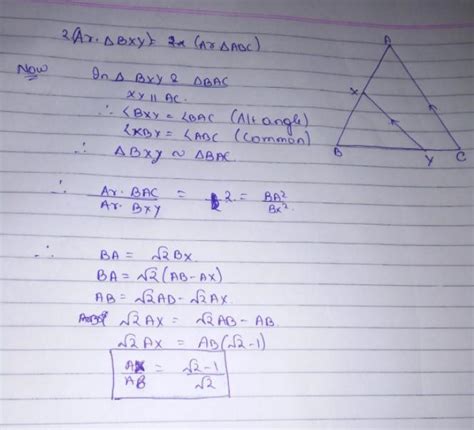 2(Ar. ΔBXY) = 2x (Ar ΔABC)
Now In Δ BXY & ΔBAC
XY || AC.
∴ ∠BXY = ∠BAC (Alt angle)
∠XBY = ∠ABC (Common)
∴ ΔBXY ~ ΔBAC.
∴ Ar. BAC / Ar. BXY = 2 = BA² / BX².
∴ BA = √2 BX.
BA = √2 (AB - AX)
AB = √2 AB - √2 AX
√2 AX = √2 AB - AB.
√2 AX = AB (√2 - 1)
AX / AB = √2 - 1 / √2
A
X
B
Y
C